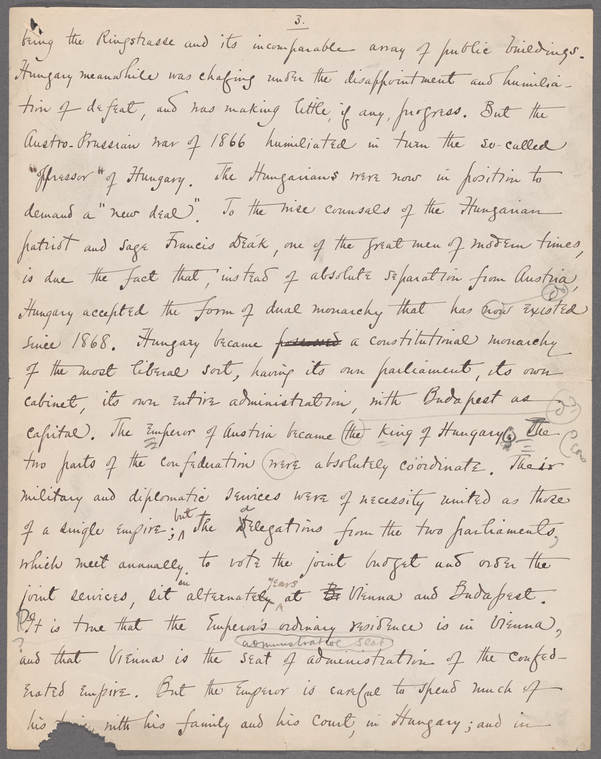 3.
being the Ringstrasse and its incomparable array of public buildings.
Hungary meanwhile was chafing under the disappointment and humilia-
tion of defeat, and was making little, if any, progress. But the
Austro-Prussian war of 1866 humiliated in turn the so-called
"oppressor" of Hungary. The Hungarians were now in position to
demand a "new deal". To the wise counsels of the Hungarian
patriot and sage Francis Deák, one of the great men of modern times,
is due the fact that, instead of absolute separation from Austria,
Hungary accepted the form of dual monarchy that has now existed
since 1868. Hungary became possessed a constitutional monarchy
of the most liberal sort, having its own parliament, its own
cabinet, its own entire administration, with Budapest as
capital. The Emperor of Austria became (the) King of Hungary. The
two parts of the confederation were absolutely coördinate. Their
military and diplomatic services were of necessity united as those
of a single empire; but the delegations from the two parliaments,
which meet annually to vote the joint budget and order the
joint services, sit in alternate years at Vienna and Budapest.
It is true that the Emperor's ordinary residence is in Vienna,
administrative seat
and that Vienna is the seat of administration of the confed-
erated Empire. But the Emperor is careful to spend much of
his time, with his family and his Court, in Hungary; and in